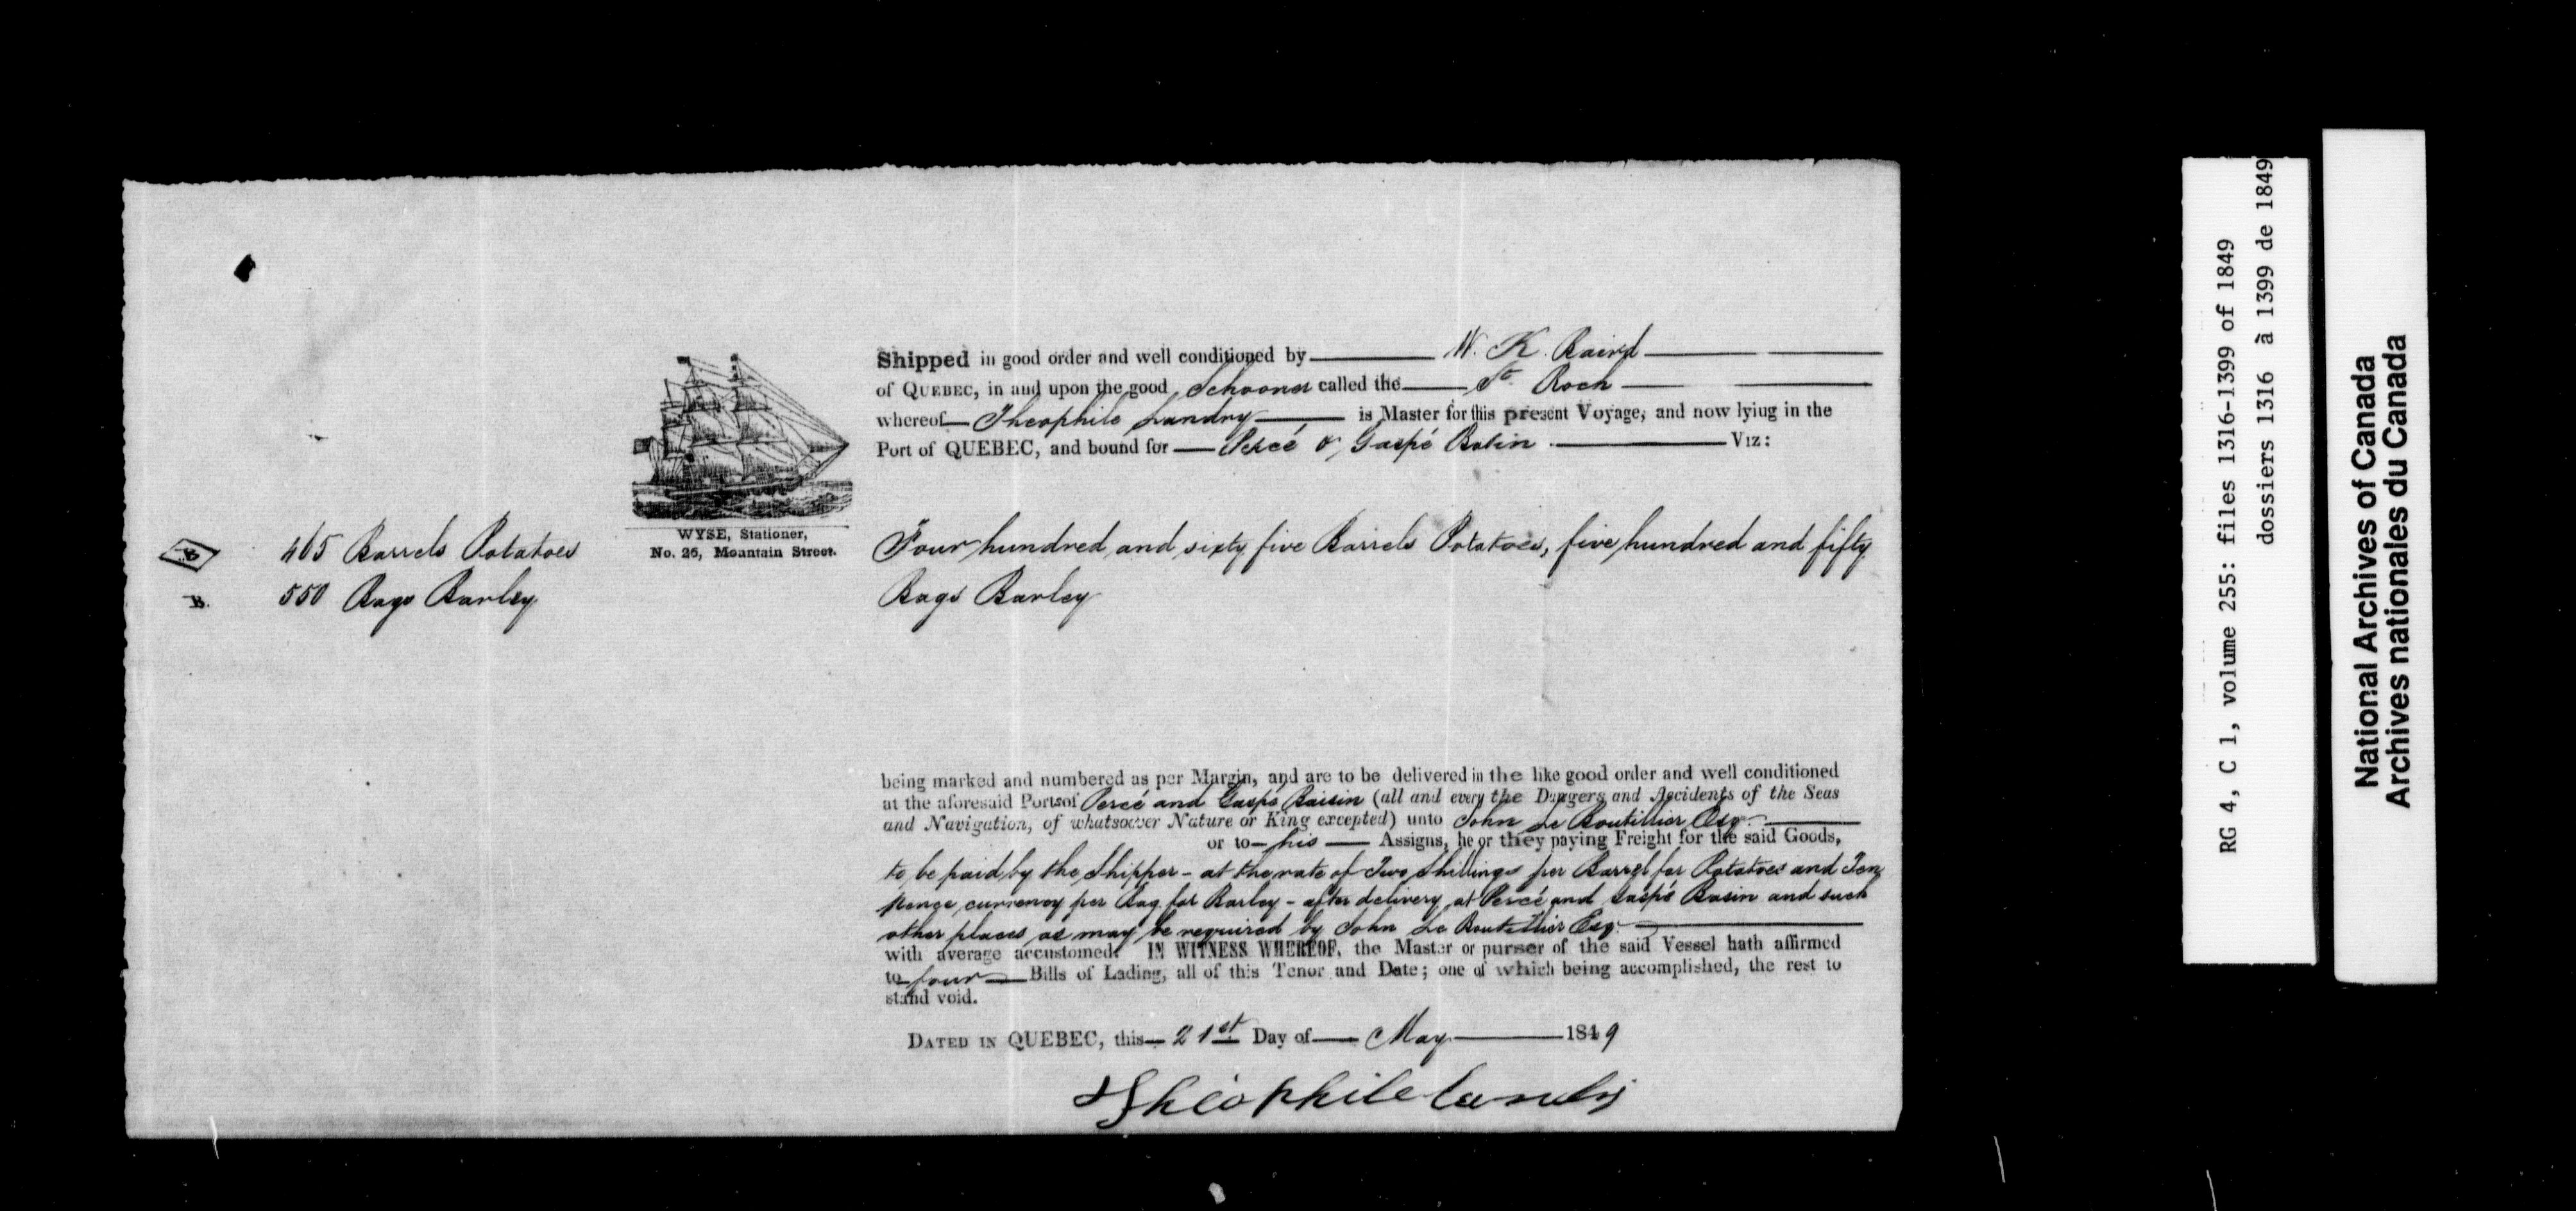 Shipped in good order and well conditioned by W. K. Baird
of QUEBEC, in and upon the good Schooner called the St. Roch
whereof Theophile Landry is Master for this present Voyage, and now lyiug in the
Port of QUEBEC, and bound for Percé & Gaspé Basin. Viz:
WYSE, Stationer,
No. 26, Mountain Street.
B 465 Barrels Potatoes
B. 550 Bags Barley
Four hundred and sixty five Barrels Potatoes, five hundred and fifty
Bags Barley
being marked and numbered as per Margin, and are to be delivered in the like good order and well conditioned
at the aforesaid Ports of Percé and Gaspé Baisin (all and every the Dangers and Accidents of the Seas
and Navigation, of whatsoever Nature or King excepted) unto John Le Boutillier Esqr.
or to his Assigns, he or they paying Freight for the said Goods,
to be paid by the Shipper - at the rate of Two Shillings per Barrel for Potatoes and Ten
pence currency per Bag for Barley - after delivery at Percé and Gaspé Basin and such
other places as may be required by John Le Boutillier Esqr.
with average accustomed. IN WITNESS WHEREOF, the Master or purser of the said Vessel hath affirmed
to four Bills of Lading, all of this Tenor and Date; one of which being accomplished, the rest to
stand void.
DATED IN QUEBEC, this 21st Day of May 1849
Théophile Landry
RG 4, C 1, volume 255: files 1316-1399 of 1849
dossiers 1316 à 1399 de 1849
National Archives of Canada
Archives nationales du Canada